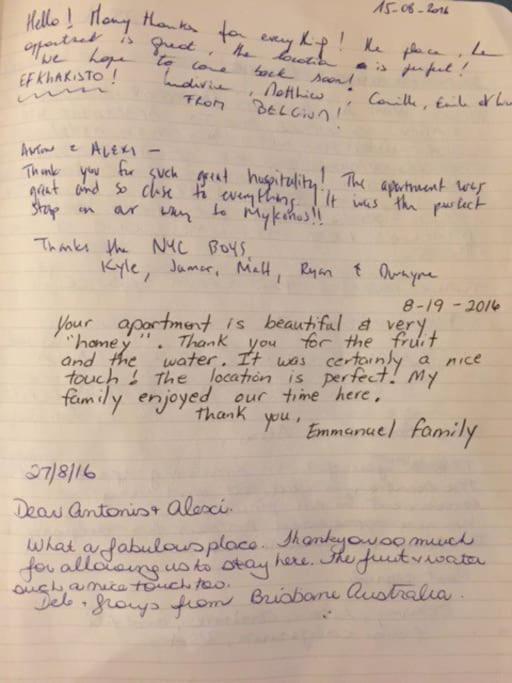 15-08-2016
Hello! Many thanks for everything! The place, the
apartment is great, the location is perfect!
We hope to come back soon!
EFKHARISTO! Ludivine, Matthieu, Camille, Emile &
FROM BELGIUM!
& ALEXI -
Thank you for such great hospitality! The apartment was
great and so close to everything! It was the perfect
stop on our way to Mykonos!!
Thanks the NYC BOYS,
Kyle, Jamar, Matt, Ryan & Dwayne
8-19-2016
Your apartment is beautiful & very
"homey". Thank you for the fruit
and the water. It was certainly a nice
touch! The location is perfect! My
family enjoyed our time here.
Thank you,
Emmanuel family
27/8/16
Dear Antonis + Alexi.
What a fabulous place. Thankyou so much
for allowing us to stay here. The fruit + water
such a nice touch too.
Deb + from Brisbane Australia.